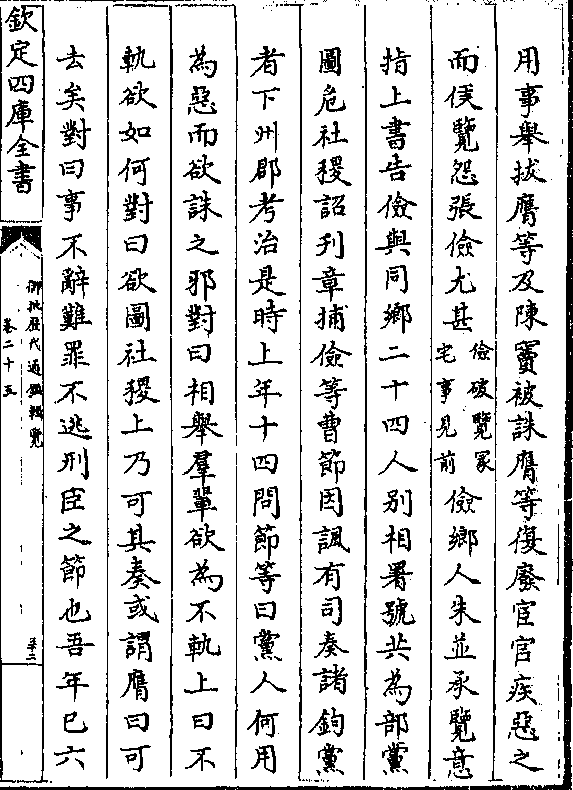 用事舉拔膺等及陳竇被誅膺等復廢宦官疾惡之
而侯覽怨張儉尤甚儉破覽冢宅事見前儉鄉人朱並承覽意
指上書告儉與同鄉二十四人别相署號共為部黨
圖危社稷詔刋章捕儉等曹節因諷有司奏諸鈎黨
者下州郡考治是時上年十四問節等曰黨人何用
為惡而欲誅之邪對曰相舉羣輩欲為不軌上曰不
軌欲如何對曰欲圖社稷上乃可其奏或謂膺曰可
去矣對曰事不辭難罪不逃刑臣之節也吾年已六
欽定四庫全書
御批歷代通鑑輯覽
卷二十五